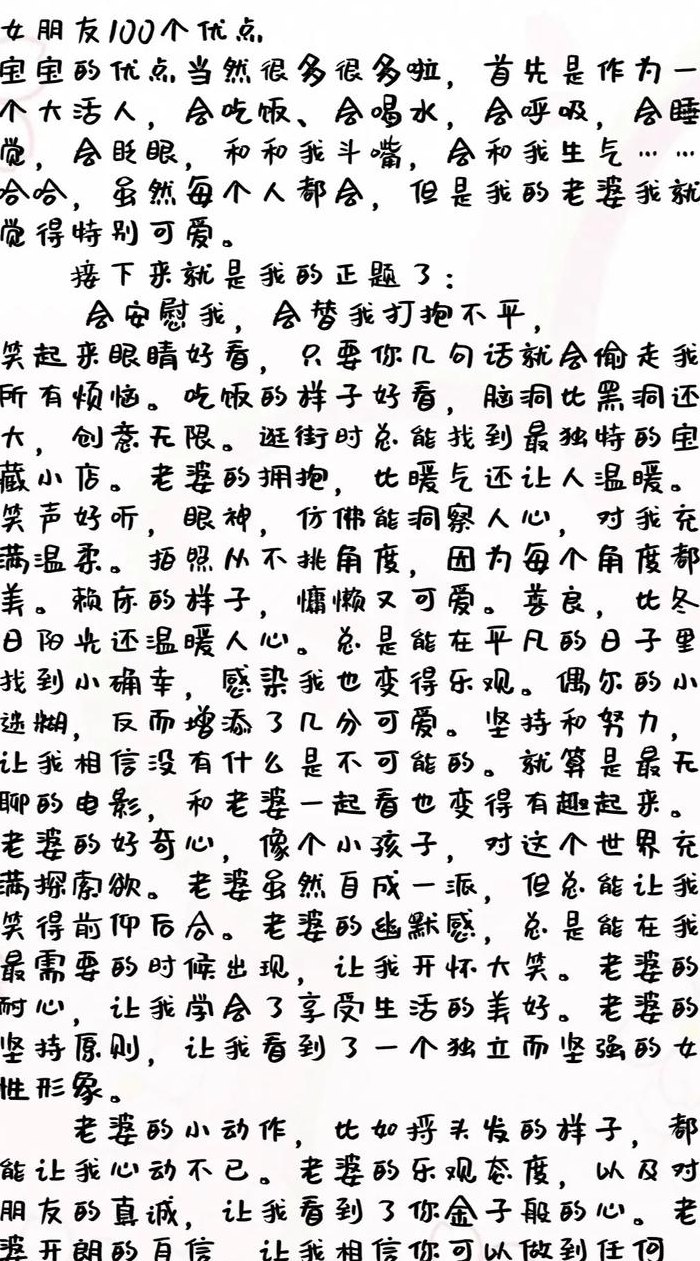 女朋友100个优点
宝宝的优点当然很多很多啦，首先是作为一
个大活人，会吃饭、会喝水，会呼吸，会睡
觉，会眨眼，和和我斗嘴，会和我生气……
哈哈，虽然每个人都会，但是我的老婆我就
觉得特别可爱。
接下来就是我的正题了：
会安慰我，会替我打抱不平，
笑起来眼睛好看，只要你几句话就会偷走我
所有烦恼。吃饭的样子好看，脑洞比黑洞还
大，创意无限。逛街时总能找到最独特的宝
藏小店。老婆的拥抱，比暖气还让人温暖。
笑声好听，眼神，仿佛能洞察人心，对我充
满温柔。拍照从不挑角度，因为每个角度都
美。赖床的样子，慵懒又可爱。善良，比冬
日阳光还温暖人心。总是能在平凡的日子里
找到小确幸，感染我也变得乐观。偶尔的小
迷糊，反而增添了几分可爱。坚持和努力，
让我相信没有什么是不可能的。就算是最无
聊的电影，和老婆一起看也变得有趣起来。
老婆的好奇心，像个小孩子，对这个世界充
满探索欲。老婆虽然自成一派，但总能让我
笑得前仰后合。老婆的幽默感，总是能在我
最需要的时候出现，让我开怀大笑。老婆的
耐心，让我学会了享受生活的美好。老婆的
坚持原则，让我看到了一个独立而坚强的女
性形象。
老婆的小动作，比如捋头发的样子，都
能让我心动不已。老婆的乐观态度，以及对
朋友的真诚，让我看到了你金子般的心。老
婆开朗的自信，让我相信你可以做到任何